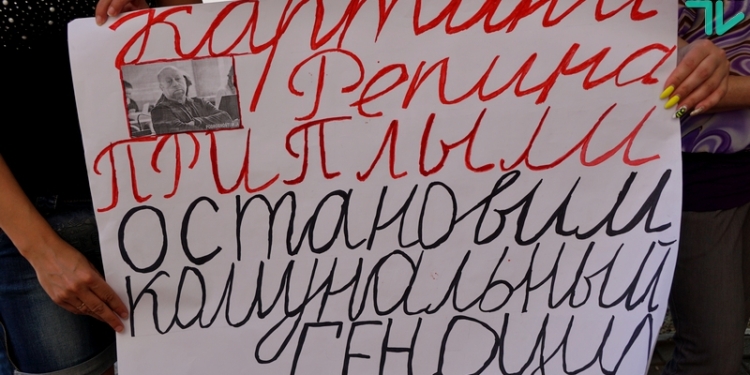 картина
Репина
ПРИПЛЫЛИ
ОСТАНОВИМ
КОМУНАЛЬНЫЙ
ГЕНОЦИД